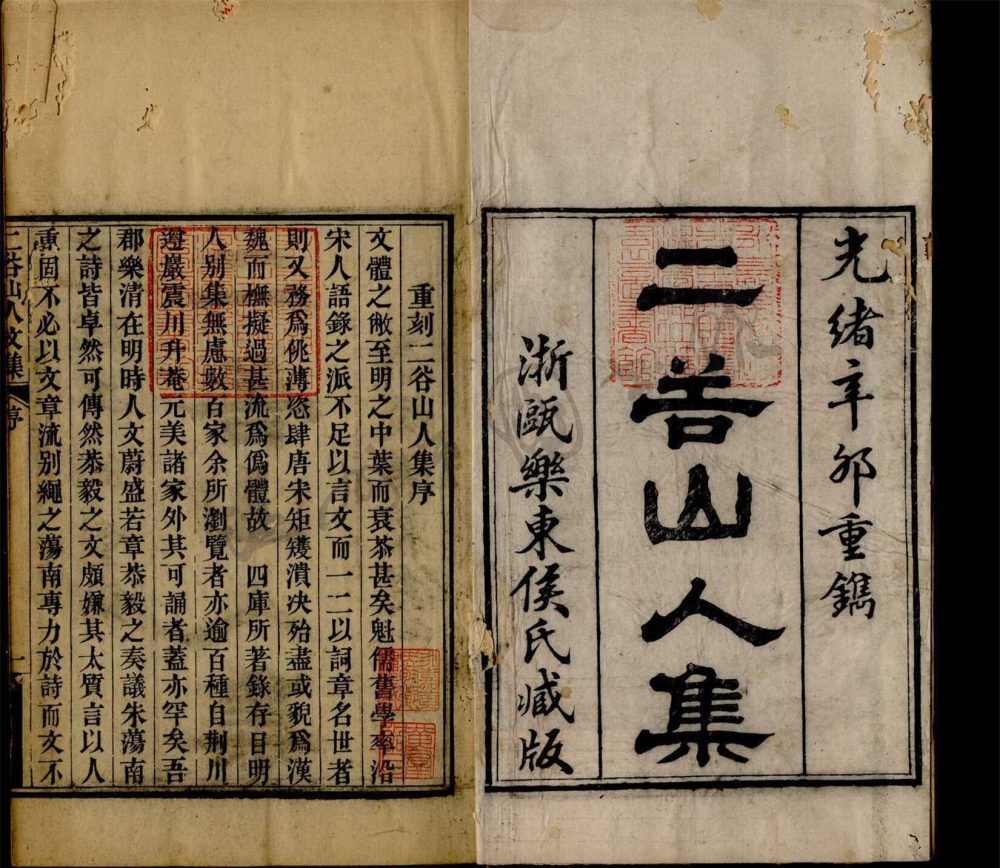 光緒辛卯重鐫
二谷山人集
浙甌樂東侯氏臧版
重刻二谷山人集序
文體之敝至明之中葉而衰苶甚矣魁儒舊學率沿
宋人語錄之派不足以言文而一二以詞章名世者
則又務爲佻薄恣肆唐宋矩矱潰決殆盡或貌爲漢
魏而橅擬過甚流爲僞體故四庫所著錄存目明
人別集無慮數百家余所瀏覽者亦逾百種自荆川
遵巖震川升菴元美諸家外其可誦者蓋亦罕矣吾
郡樂清在明時人文蔚盛若章恭毅之奏議朱蕩南
之詩皆卓然可傳然恭毅之文頗嫌其太質言以人
重固不必以文章流別繩之蕩南專力於詩而文不
二谷山人文集 序 一